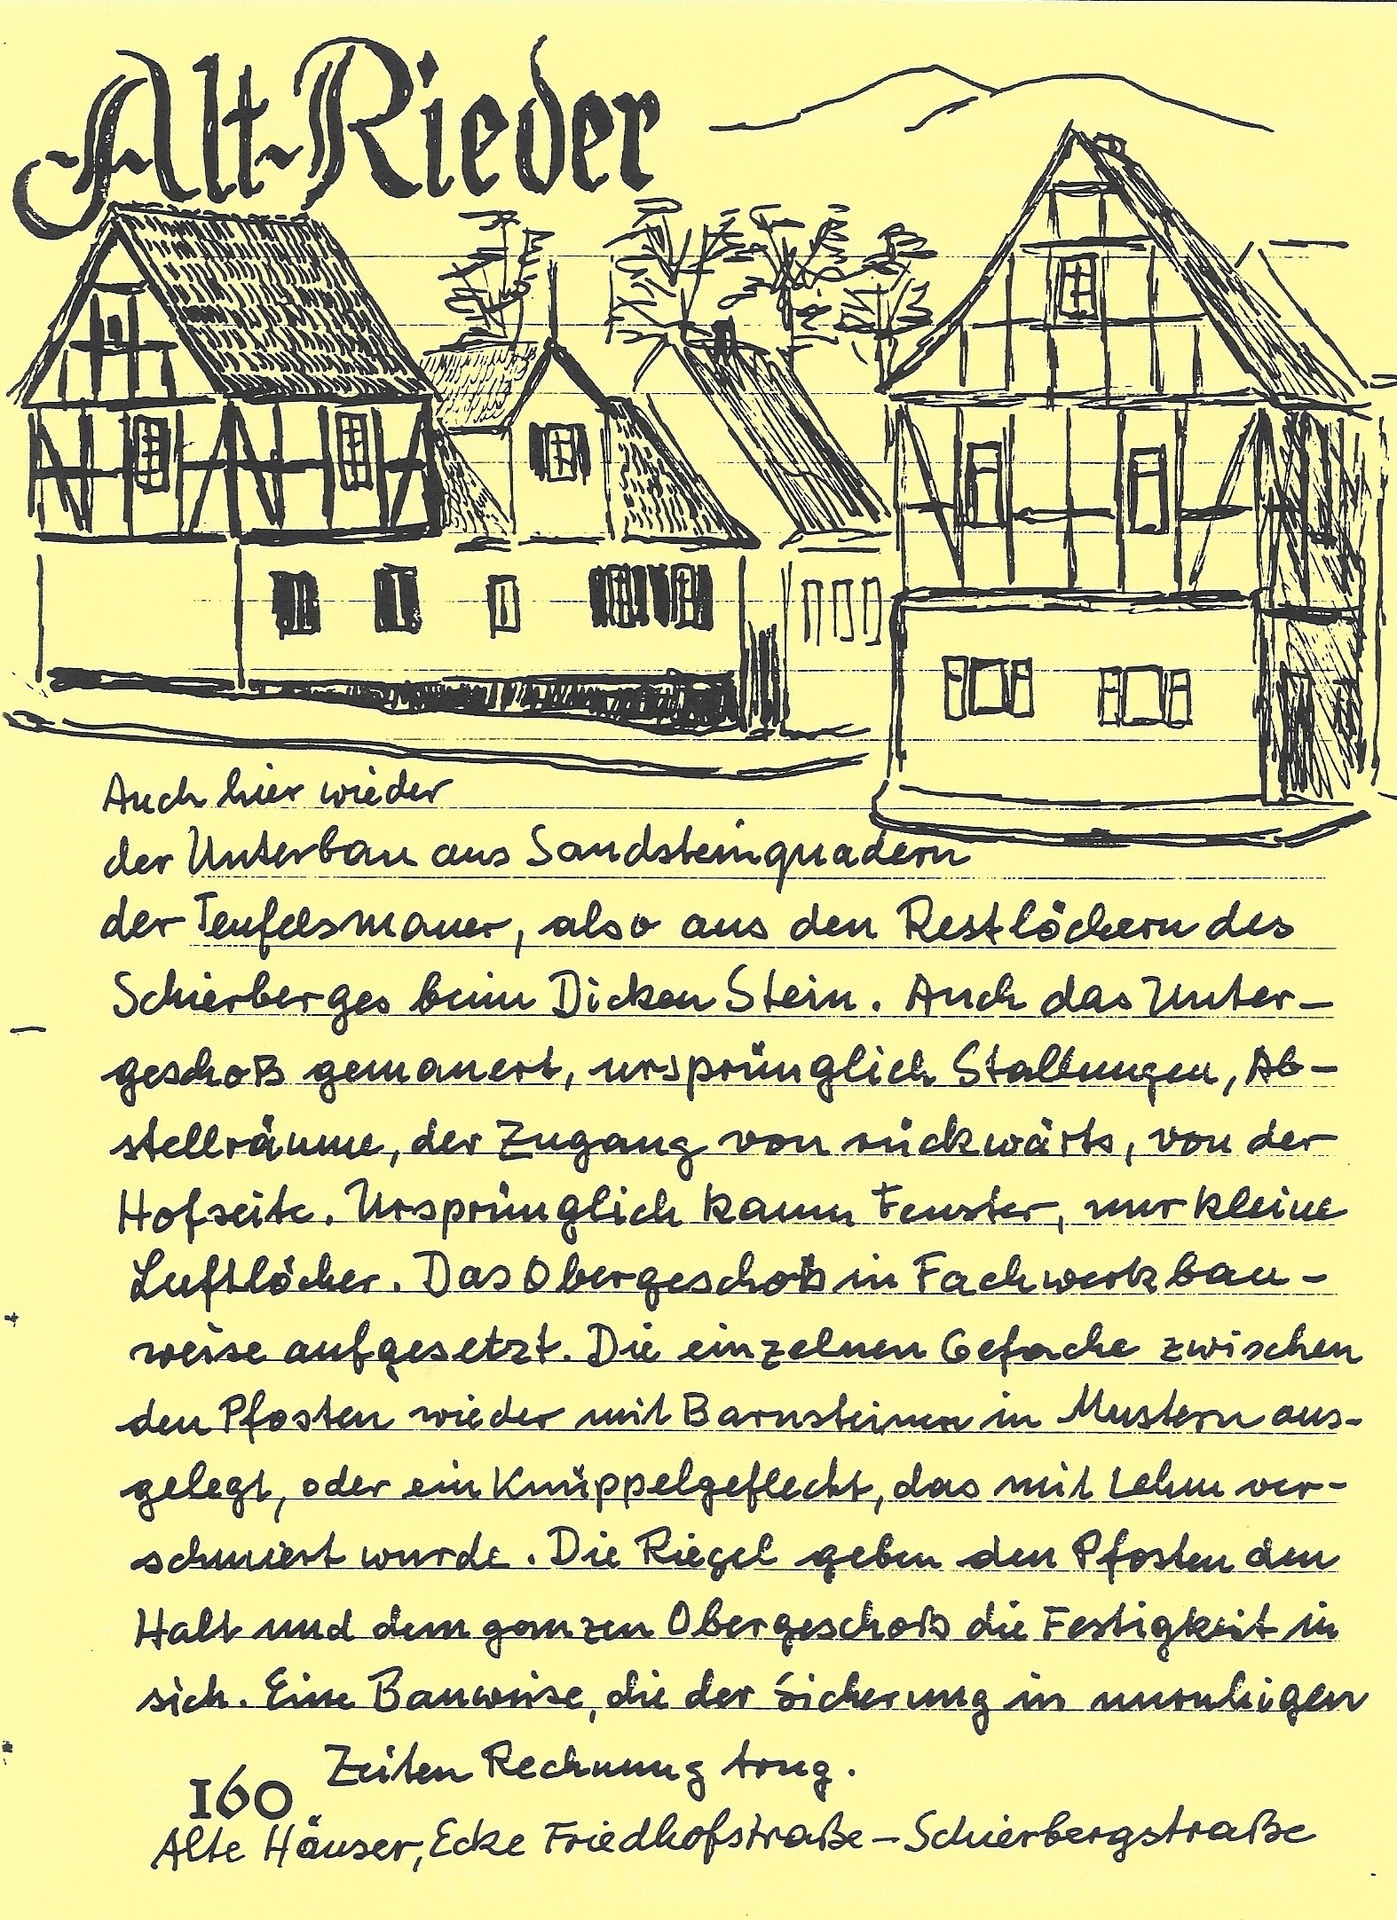 Alt-Rieder
Auch hier wieder
der Unterbau aus Sandsteinquadern
der Teufelsmauer, also aus den Restlöchern des
Schierberges beim Dicken Stein. Auch das Unter-
geschoß gemauert, ursprünglich Stallungen, Ab-
stellräume, der Zugang von rückwärts, von der
Hofseite. Ursprünglich kaum Fenster, nur kleine
Luftlöcher. Das Obergeschoß in Fachwerkbau-
weise aufgesetzt. Die einzelnen Gefache zwischen
den Pfosten wieder mit Barnsteinen in Mustern aus-
gelegt, oder ein Knüppelgeflecht, das mit Lehm ver-
schmiert wurde. Die Riegel geben den Pfosten den
Halt und dem ganzen Obergeschoß die Festigkeit in
sich. Eine Bauweise, die der Sicherung in unruhigen
Zeiten Rechnung trug.
160
Alte Häuser, Ecke Friedhofstraße - Schierbergstraße